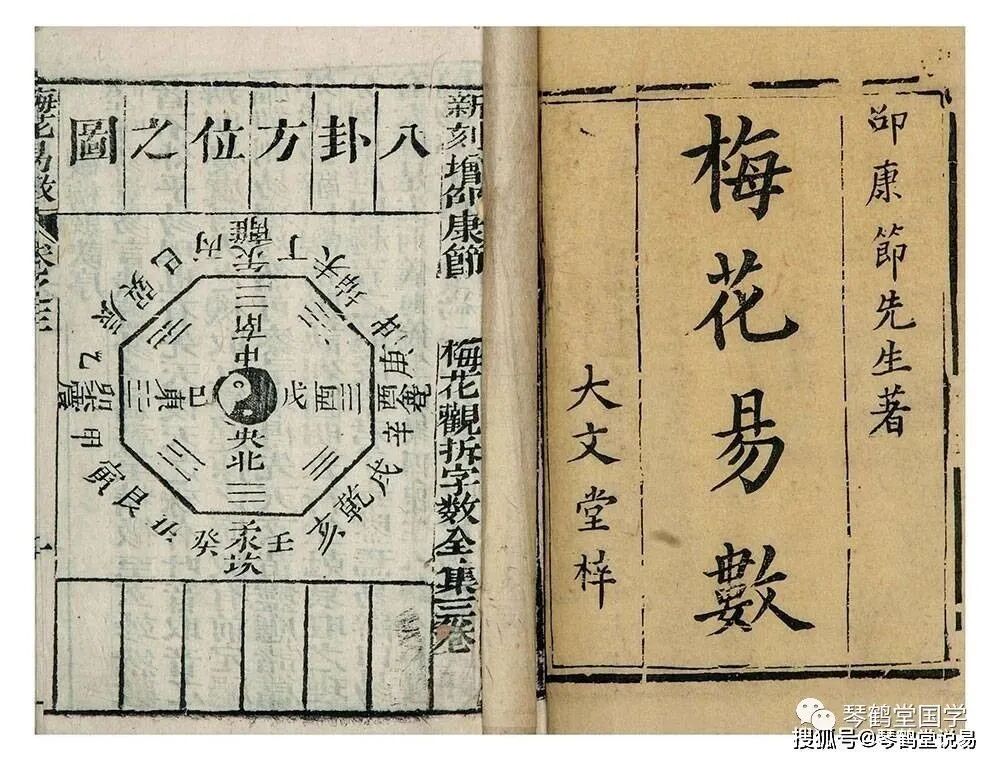 邵康節先生著
梅花易數
大文堂梓
新刻增邵康節
梅花觀拆字數全集三卷
八卦方位之圖
丙
離
午
丁
未
坤
申
庚
酉
兌
辛
戌
乾
亥
壬
子
坎
癸
丑
艮
寅
甲
卯
震
乙
辰
巽
巳
南
中
東
巳
戊
酉
央
北
梅花易數
卷之三
琴鹤堂国学
搜狐号@琴鹤堂说易